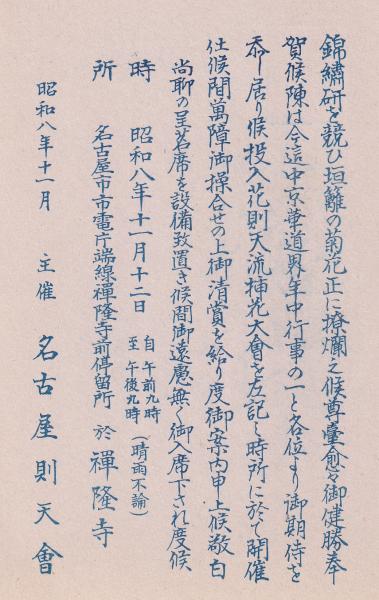 錦繡研を競ひ垣籬の菊花正に撩爛之候尊臺愈々御健勝奉
賀候陳は今這中京華道界年中行事の一と各位より御期待を
忝し居り候投入花則天流揷花大會を左記之時所に於て開催
仕候間萬障御操合せの上御清賞を給り度御案内申上候敬白
尚聊の呈茗席を設備致置き候間御遠慮無く御入席下され度候
時 昭和八年十一月十二日 自午前九時 至午後九時 (晴雨不論)
所 名古屋市市電庁端線禪隆寺前停留所 於 禪隆寺
昭和八年十一月 主催 名古屋則天會